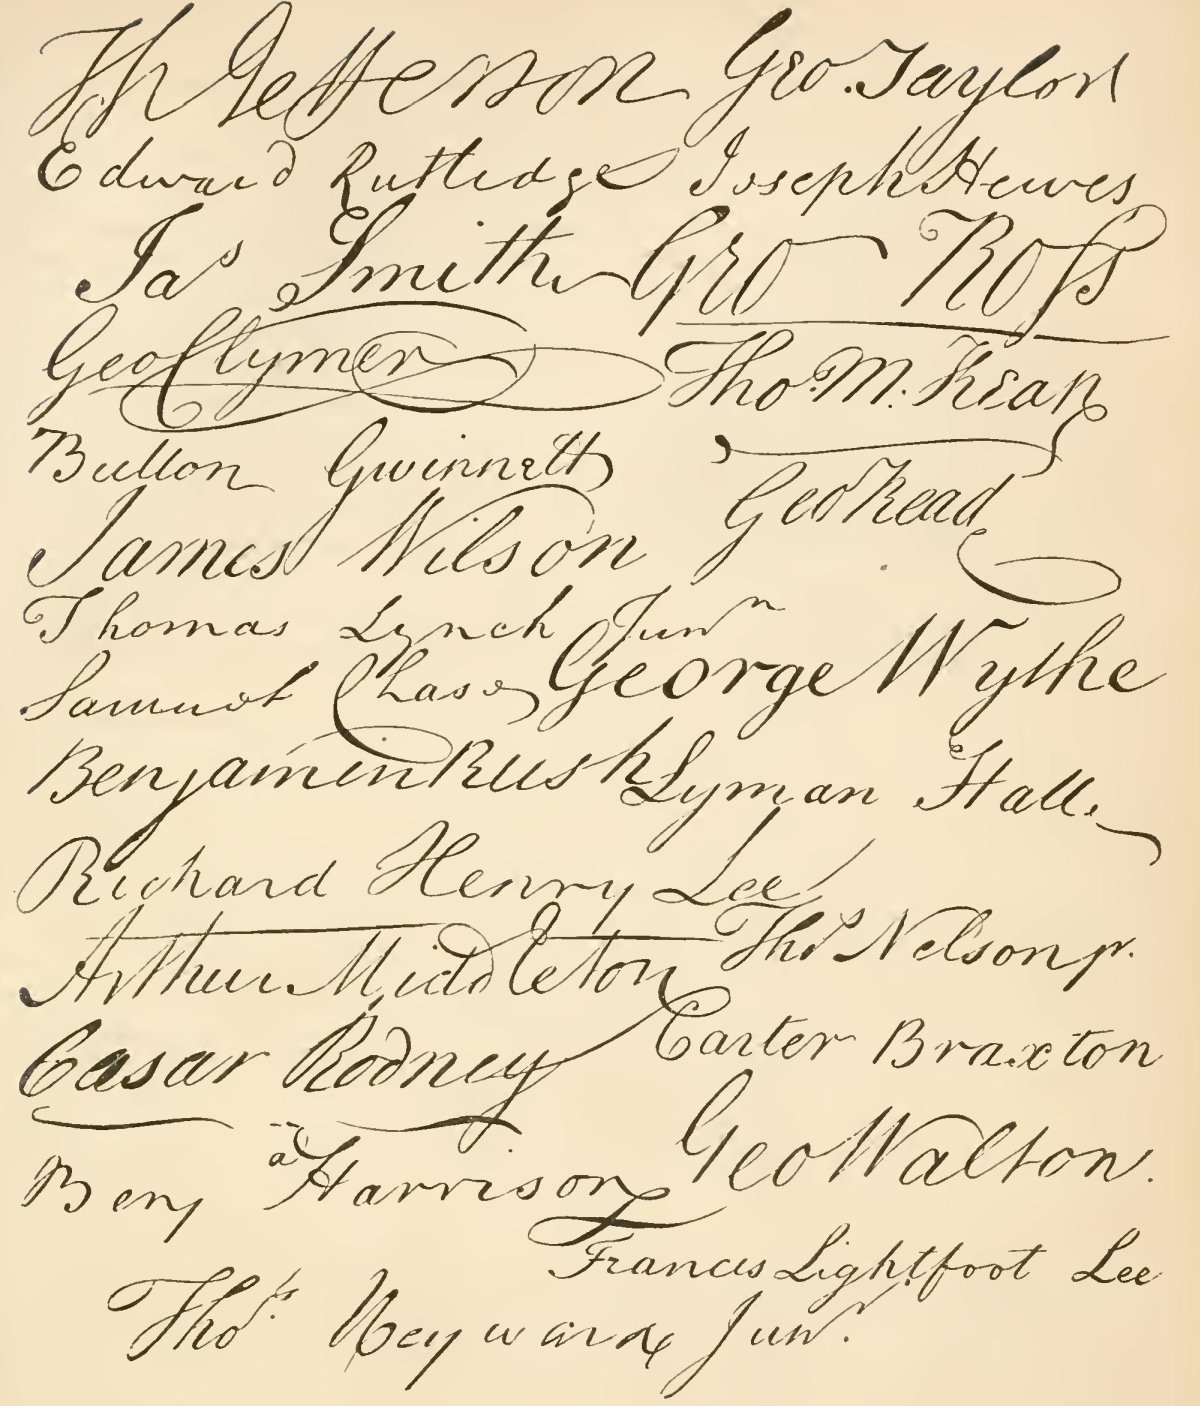 Th Jefferson Geo. Taylor
Edward Rutledge Joseph Hewes
Jas Smith Geo Ross
Geo Clymer Tho M:Kean
Button Gwinnett Geo Read
James Wilson
Thomas Lynch Junr
Samuel Chase George Wythe
Benjamin Rush Lyman Hall.
Richard Henry Lee
Arthur Middleton Thos Nelson jr.
Cæsar Rodney Carter Braxton
Benja Harrison Geo Walton.
Francis Lightfoot Lee
Thos. Heyward Junr.